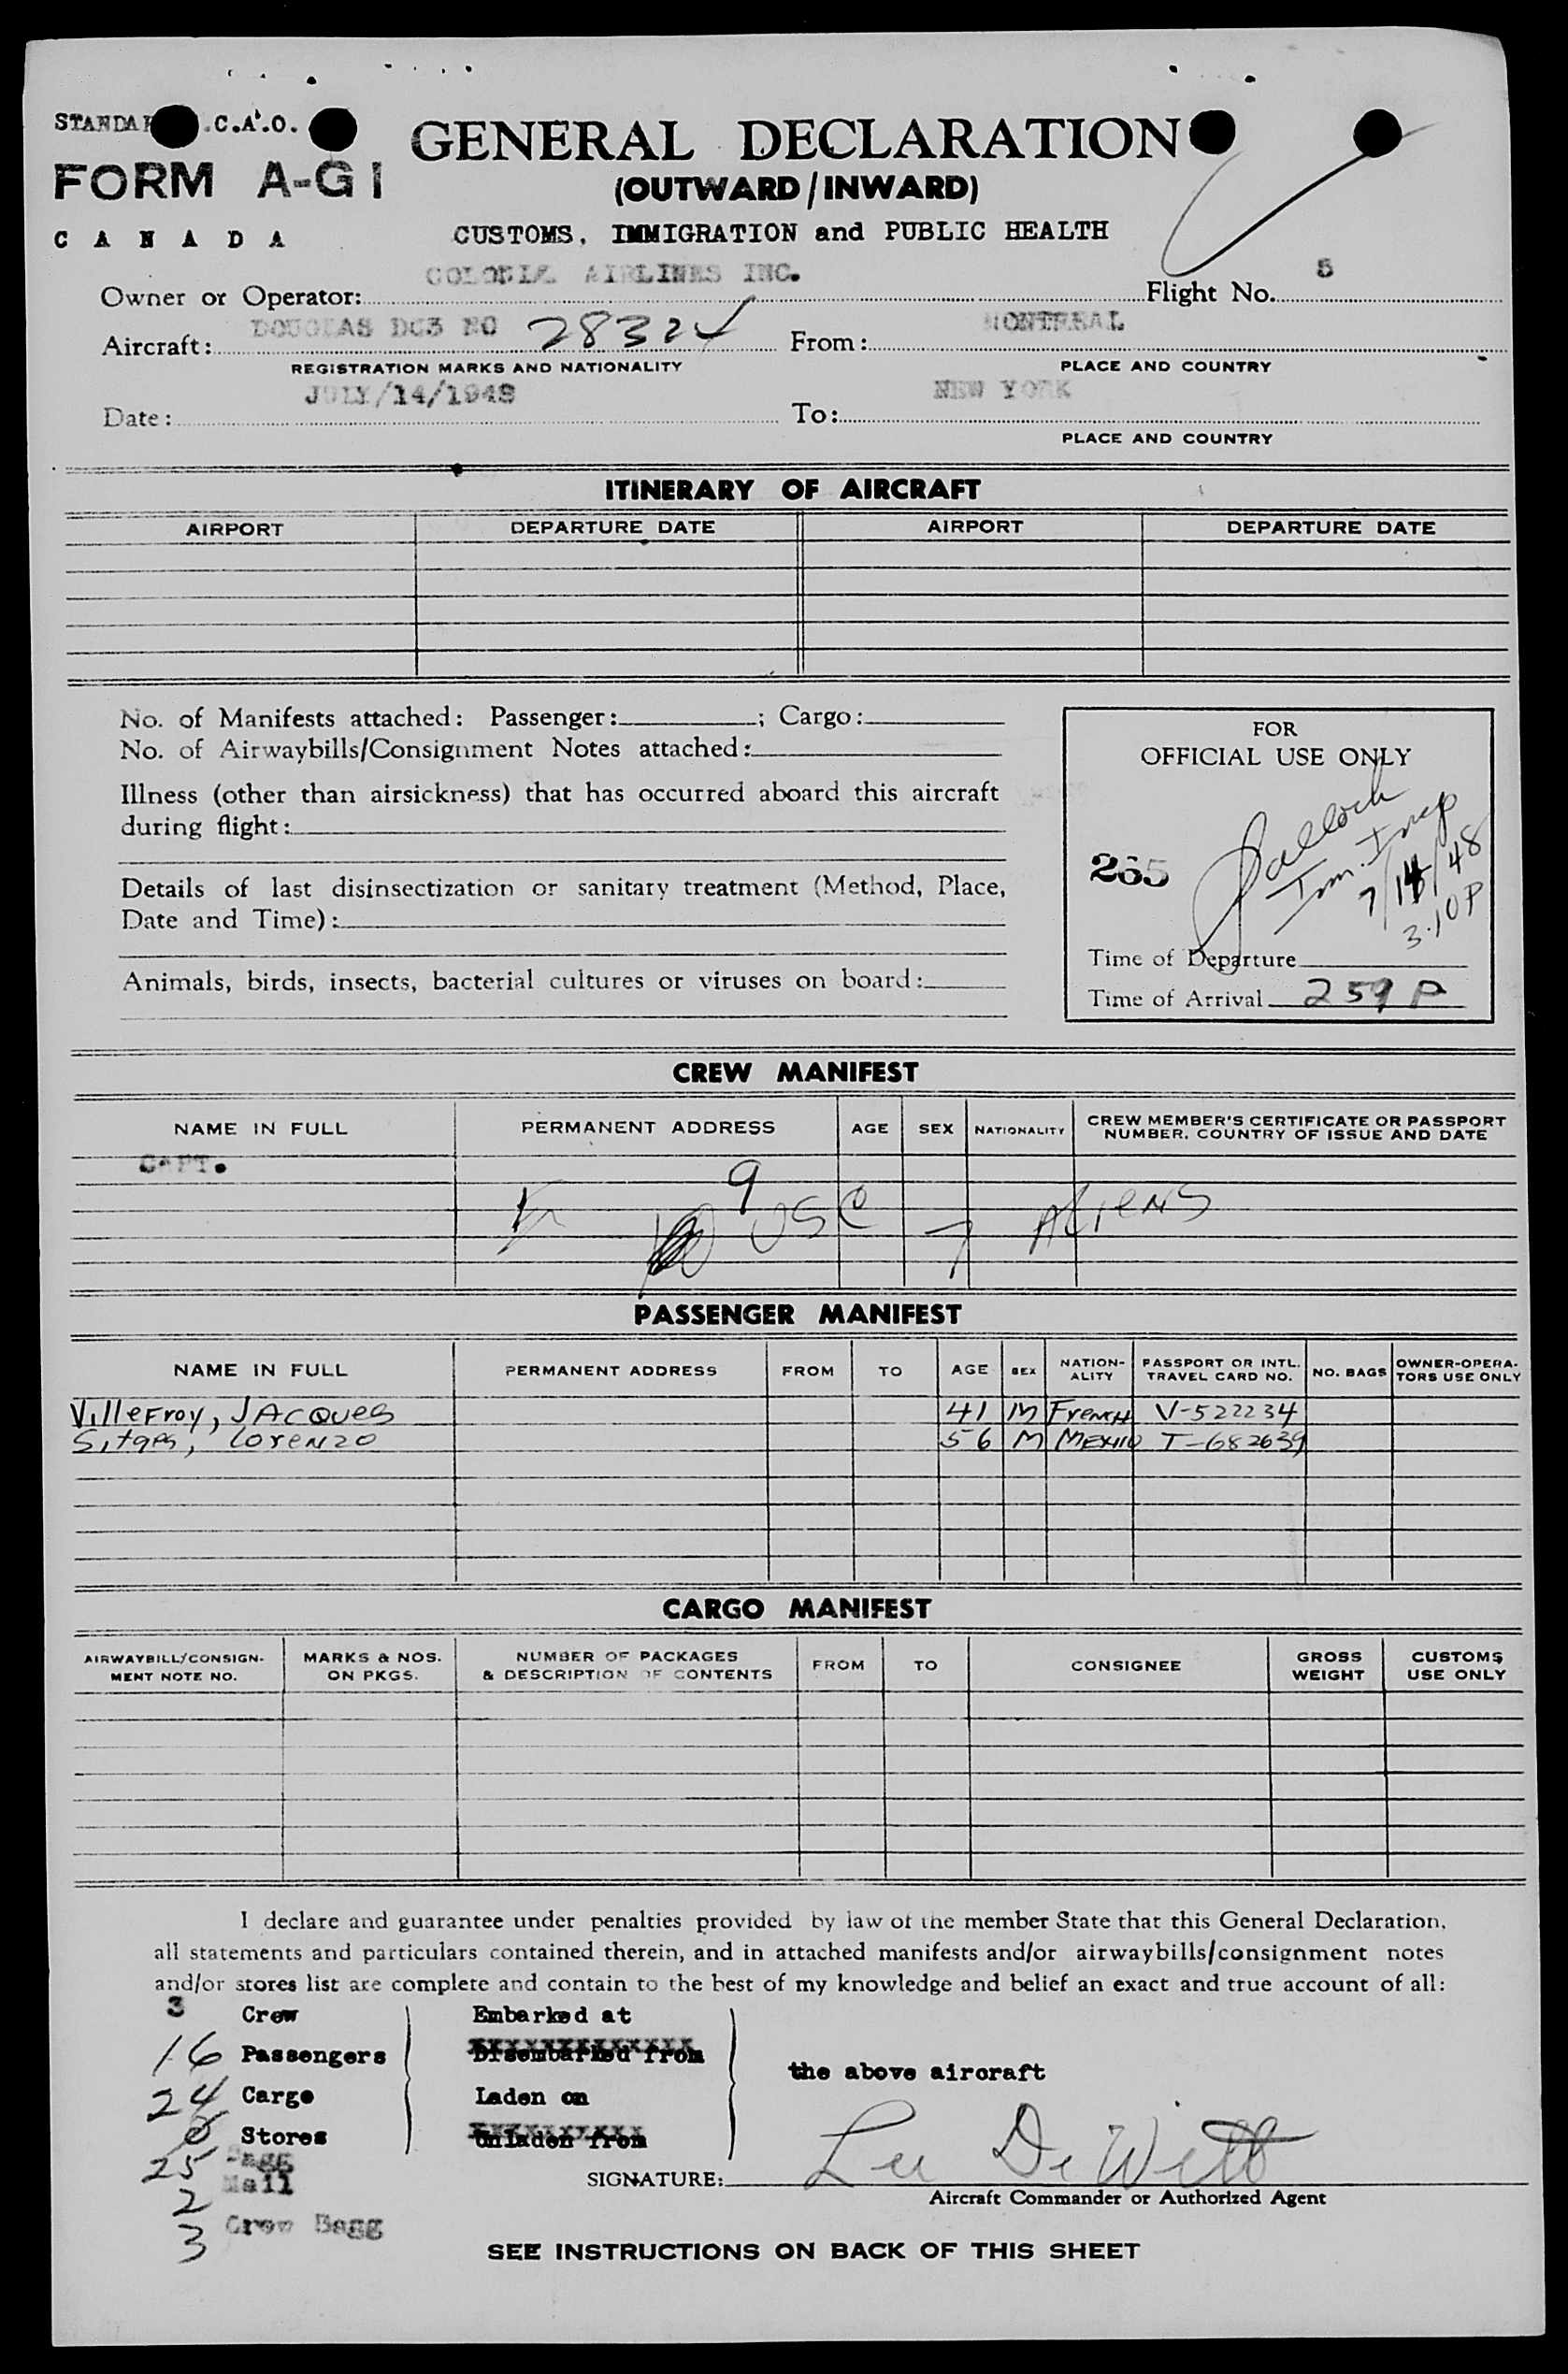 STANDA .C.A.O.
FORM A-G1
CANADA
GENERAL DECLARATION
(OUTWARD/INWARD)
CUSTOMS, IMMIGRATION and PUBLIC HEALTH
Owner or Operator: AIRLINES INC. Flight No. 5
Aircraft: DOUGLAS DC3 NO 28324 From: MONTREAL
REGISTRATION MARKS AND NATIONALITY PLACE AND COUNTRY
Date: JULY/14/1948 To: NEW YORK
PLACE AND COUNTRY
ITINERARY OF AIRCRAFT
AIRPORT DEPARTURE DATE AIRPORT DEPARTURE DATE
No. of Manifests attached: Passenger: ; Cargo:
No. of Airwaybills/Consignment Notes attached:
Illness (other than airsickness) that has occurred aboard this aircraft
during flight:
Details of last disinsectization or sanitary treatment (Method, Place,
Date and Time):
Animals, birds, insects, bacterial cultures or viruses on board:
FOR
OFFICIAL USE ONLY
265
Imm. Insp
7/14/48
3.10P
Time of Departure
Time of Arrival 259 P
CREW MANIFEST
NAME IN FULL PERMANENT ADDRESS AGE SEX NATIONALITY CREW MEMBER'S CERTIFICATE OR PASSPORT
NUMBER, COUNTRY OF ISSUE AND DATE
CAPT.
9 USC 7 ALIENS
PASSENGER MANIFEST
NAME IN FULL PERMANENT ADDRESS FROM TO AGE SEX NATION-
ALITY PASSPORT OR INTL.
TRAVEL CARD NO. NO. BAGS OWNER-OPERA-
TORS USE ONLY
Villefroy, JACQues 41 M French V-522234
Sitges, Lorenzo 56 M MEXICO T-682639
CARGO MANIFEST
AIRWAYBILL/CONSIGN-
MENT NOTE NO. MARKS & NOS.
ON PKGS. NUMBER OF PACKAGES
& DESCRIPTION OF CONTENTS FROM TO CONSIGNEE GROSS
WEIGHT CUSTOMS
USE ONLY
I declare and guarantee under penalties provided by law of the member State that this General Declaration,
all statements and particulars contained therein, and in attached manifests and/or airwaybills/consignment notes
and/or stores list are complete and contain to the best of my knowledge and belief an exact and true account of all:
3 Crew Embarked at
16 Passengers Disembarked from
the above aircraft
24 Cargo Laden on
0 Stores Unladen from
25 Bagg
2 Mail
3 Crew Bagg
SIGNATURE: Lee DeWitt
Aircraft Commander or Authorized Agent
SEE INSTRUCTIONS ON BACK OF THIS SHEET